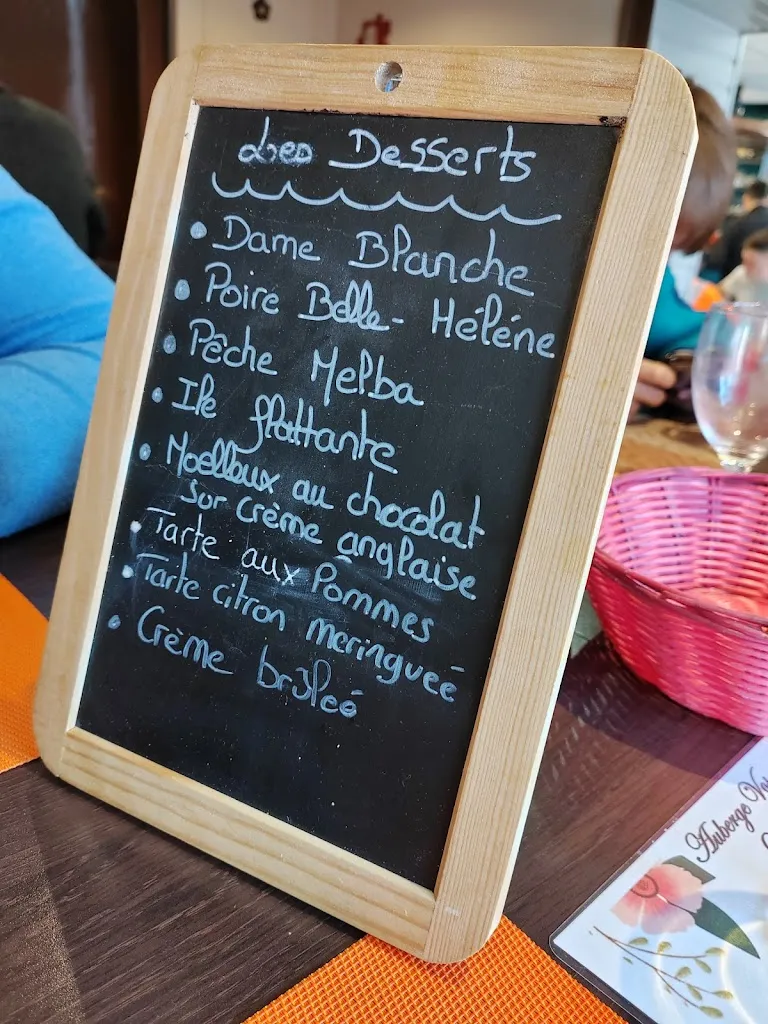 Les Desserts
• Dame Blanche
• Poire Belle-Héléne
• Pêche Melba
• Ile flottante
• Moelleux au chocolat
sur crème anglaise
• Tarte aux Pommes
• Tarte citron meringuée
• Crème brûlée
Auberge